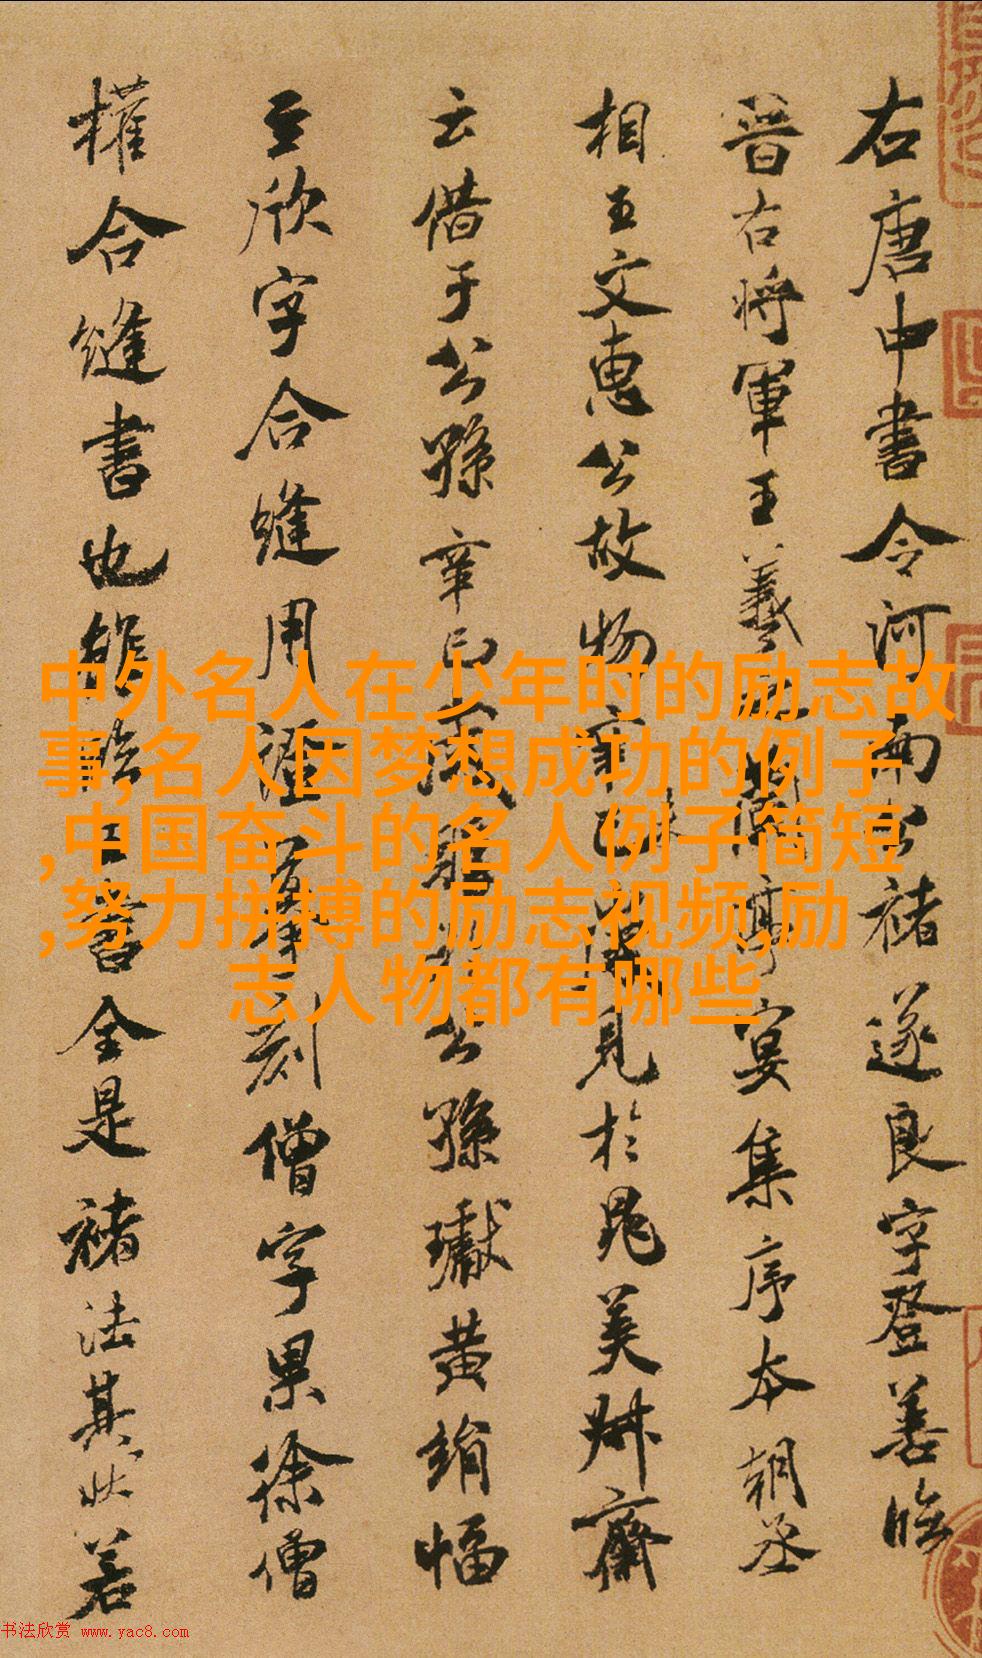 右唐中書令河南公褚遂良字登善臨
晉右將軍王羲之蘭亭宴集序本朝丞
相王文惠公故物辛見於晁美叔齋
云借于公孫辛巳歲購于公孫瓛黃絹幅
至欣字合縫用證摹刻僧字果徐僧
權合縫書也雖臨王書全是褚法其狀若
中外名人在少年时的励志故
事,名人因梦想成功的例子
,中国奋斗的名人例子简短
,努力拼搏的励志视频,励
志人物都有哪些
书法欣赏 www.yac8.com